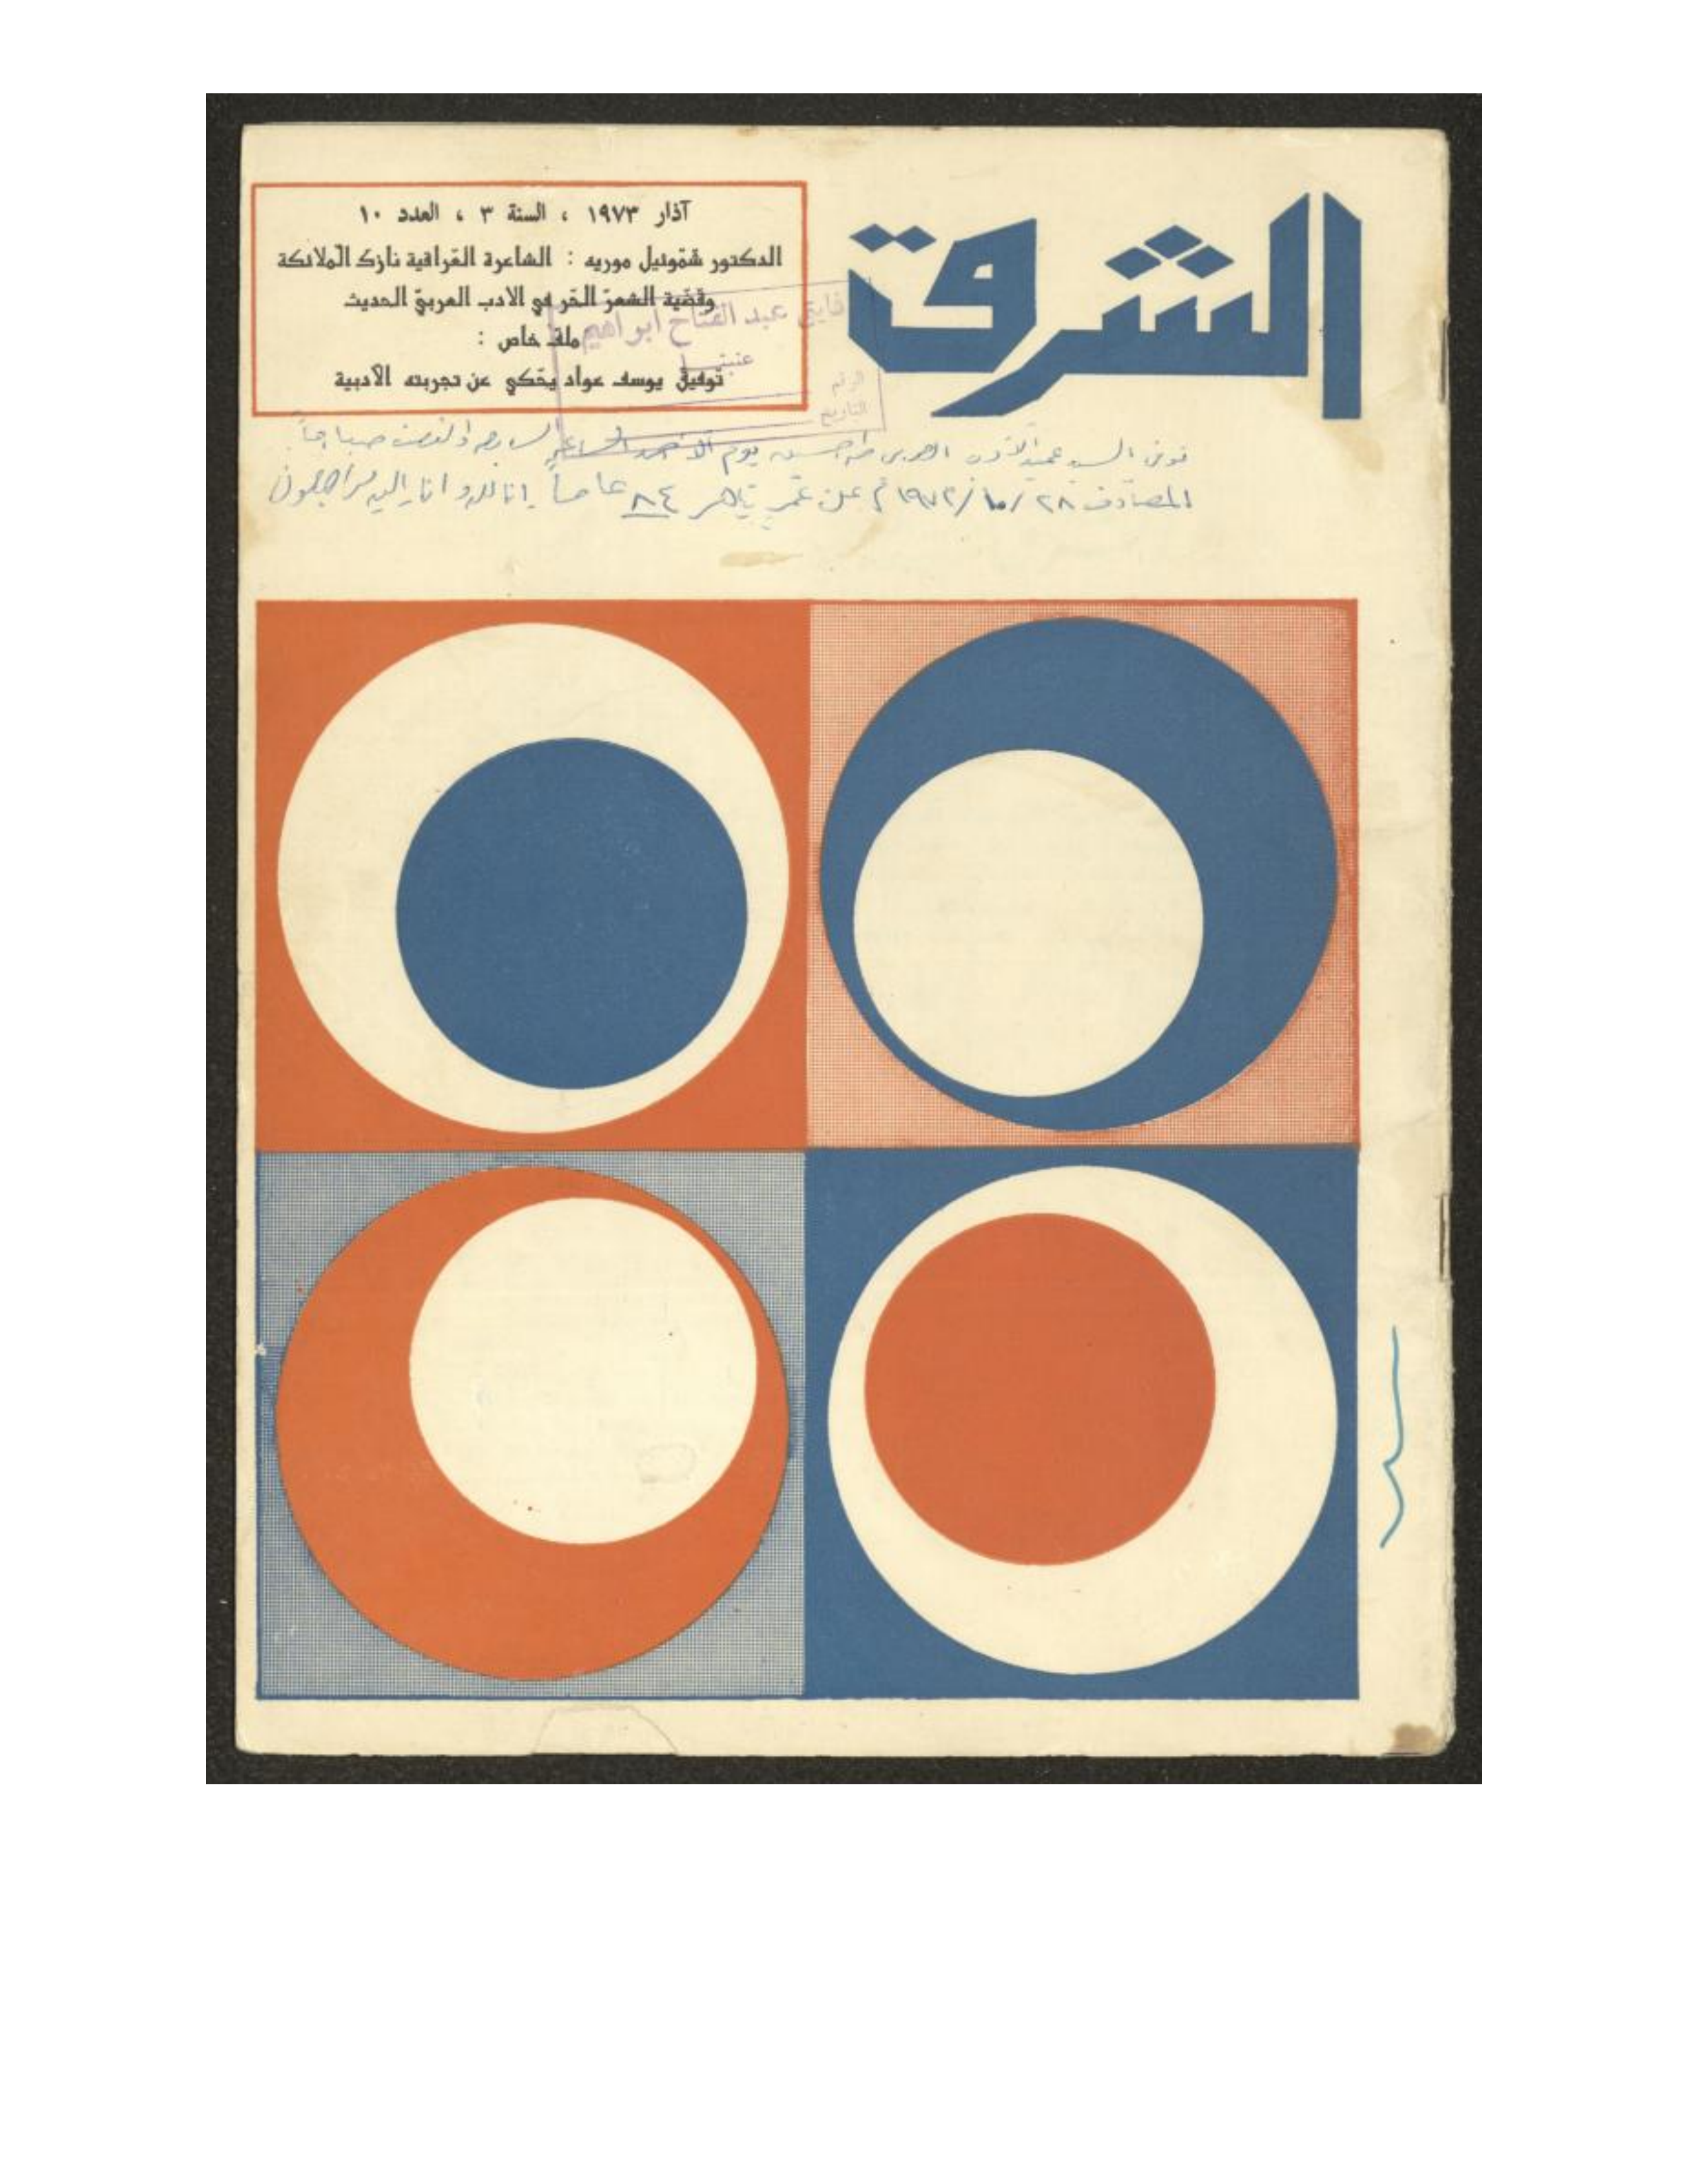 الشرق
آذار ١٩٧٣ ، السنة ٣ ، العدد ١٠
الدكتور شموئيل موريه : الشاعرة العراقية نازك الملائكة
وقضية الشعر الحر في الادب العربي الحديث
ملف خاص :
توفيق يوسف عواد يحكي عن تجربته الأدبية
فايق عبد الفتاح ابو اهيم
عنبتا
الرقم
التاريخ
توفي السيد عميد الأدب العربي طه حسين يوم الأحد الساعة السابعة والنصف صباحاً
المصادف ٢٨/١٠/١٩٧٣م عن عمر يناهز ٨٤ عاماً إنا لله وانا اليه راجعون